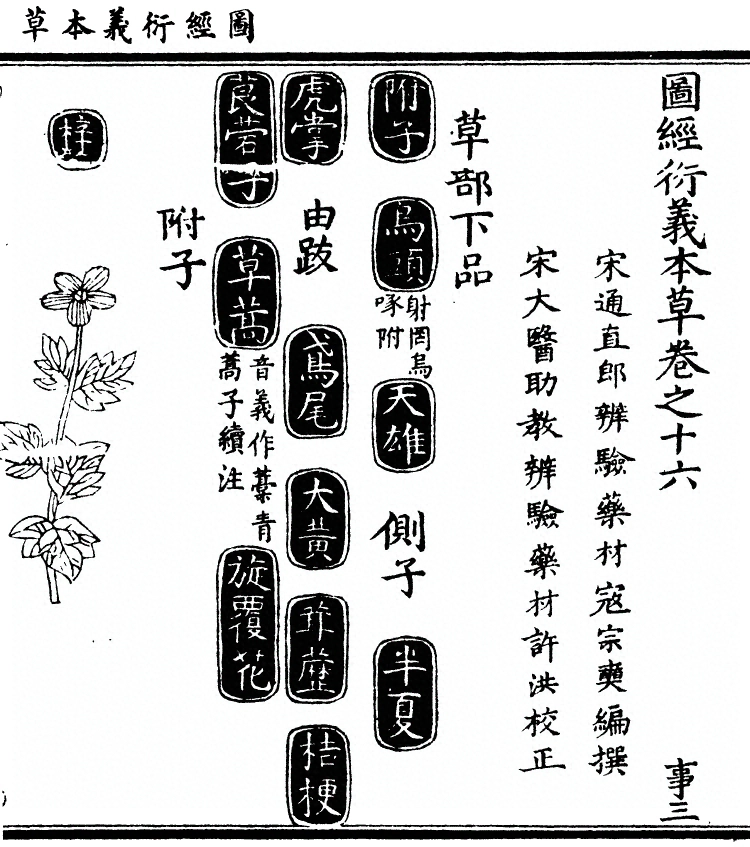 圖經衍義本草
圖經衍義本草卷之十六 事三
宋通直郎辨驗藥材寇宗奭編撰
宋大醫助教辨驗藥材許洪校正
草部下品
附子 烏頭 射罔烏啄附 天雄 側子 半夏
虎掌 由跋 鳶尾 大黄 葶藶 桔梗
莨菪子 草蒿 音義作藁青蒿子續注 旋覆花
附子
梓